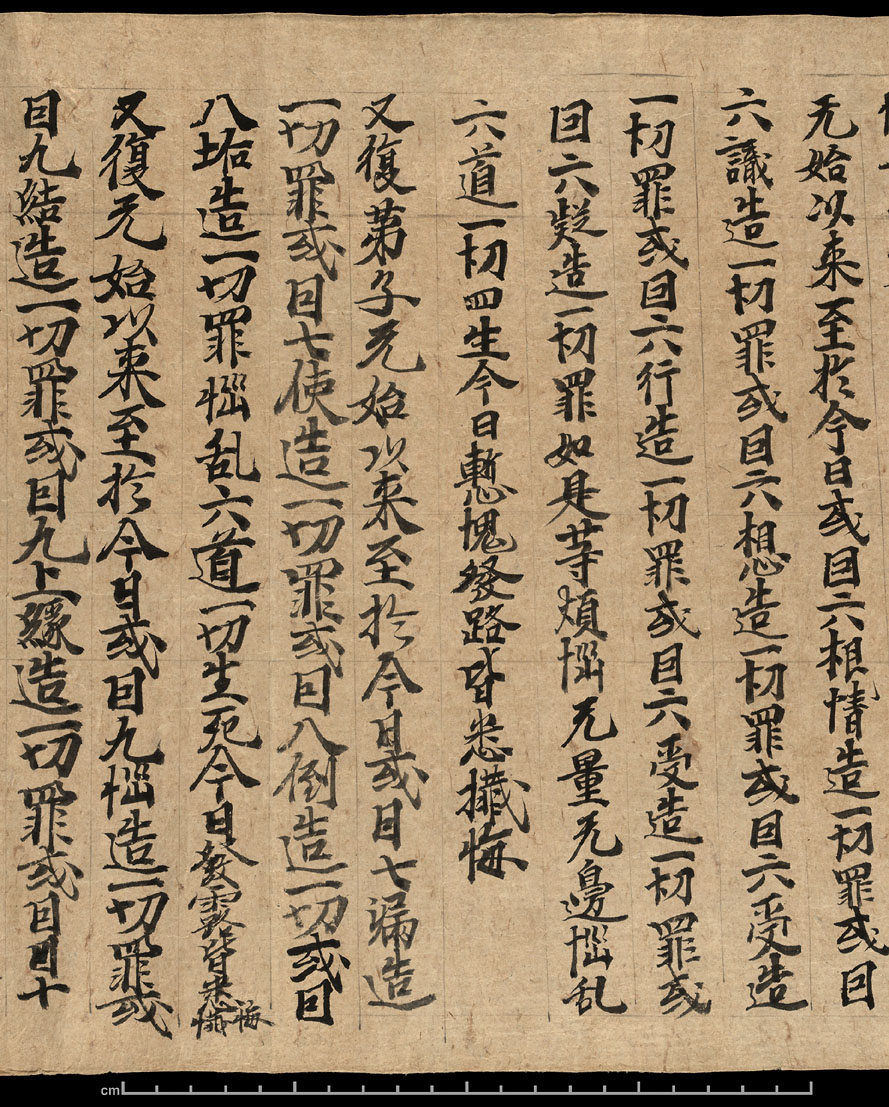 无始以来至於今日或因六想情造一切罪或因
六識造一切罪或因六想造一切罪或因六受造
一切罪或因六行造一切罪或因六受造一切罪或
因六疑造一切罪如是等煩惱无量无邊惱乱
六道一切四生今日慙愧發路皆悉懺悔
又復弟子无始以来至於今日或因七漏造
一切罪或因七使造一切罪或因八倒造一切或因
八垢造一切罪惱乱六道一切生死今日發露皆悉懺悔
又復无始以来至於今日或因九惱造一切罪或
因九結造一切罪或因九上緣造一切罪或因因十